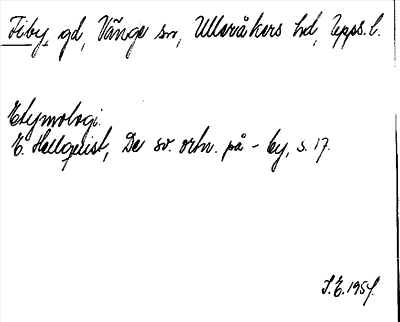 Fiby, gd, Vänge sn, Ulleråkers hd, Upps. l.
Etymologi.
E. Hellquist, De sv. ortn. på -by, s. 17.
S.E. 1954.